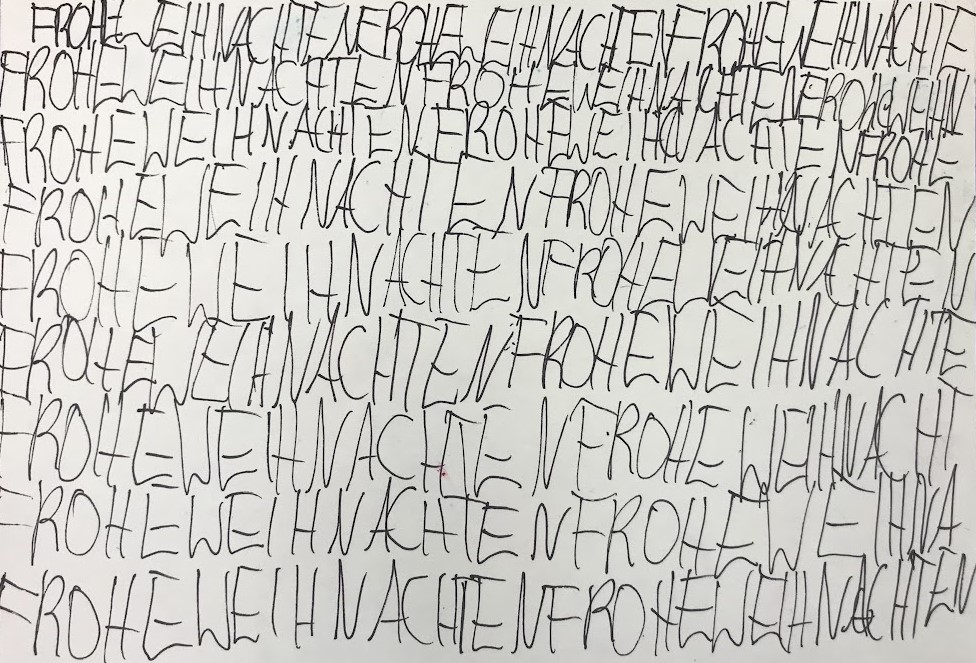 FROHEWEIHNACHTENFROHEWEIHNACHTENFROHEWEIHNACHTE
FROHEWEIHNACHTENFROHEWEIHNACHTENFROHEWEIHN
FROHEWEIHNACHTENFROHEWEIHNACHTENFROHE
FROHEWEIHNACHTENFROHEWEIHNACHTEN
FROHEWEIHNACHTENFROHEWEIHNACHTEN
FROHEWEIHNACHTENFROHEWEIHNACHTE
FROHEWEIHNACHTENFROHEWEIHNACHT
FROHEWEIHNACHTENFROHEWEIHNA
FROHEWEIHNACHTENFROHEWEIHNACHTEN